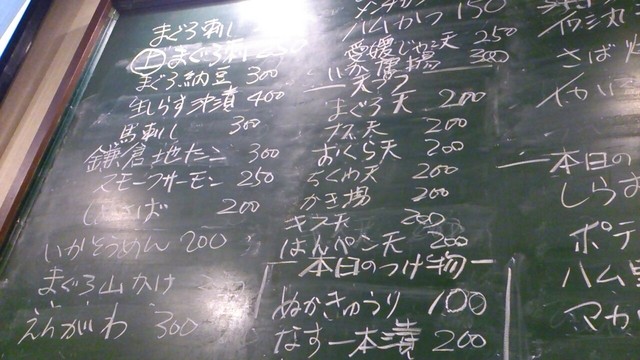 まぐろ刺し
上まぐろ刺
まぐろ納豆 300
生しらす沖漬 400
馬刺し 300
鎌倉地たこ 300
スモークサーモン 250
しめさば 200
いかそうめん 200
まぐろ山かけ
えんがわ 300
メンチカツ
ハムかつ 150
愛媛じゃこ天 250
300
天プラ
まぐろ天 200
ナス天 200
おくら天 200
ちくわ天 200
かき揚 200
キス天 200
はんぺん天 200
本日のつけ物
ぬかきゅうり 100
なす一本漬 200
さば
本日の
しらす
ポテ
ハム
マカ